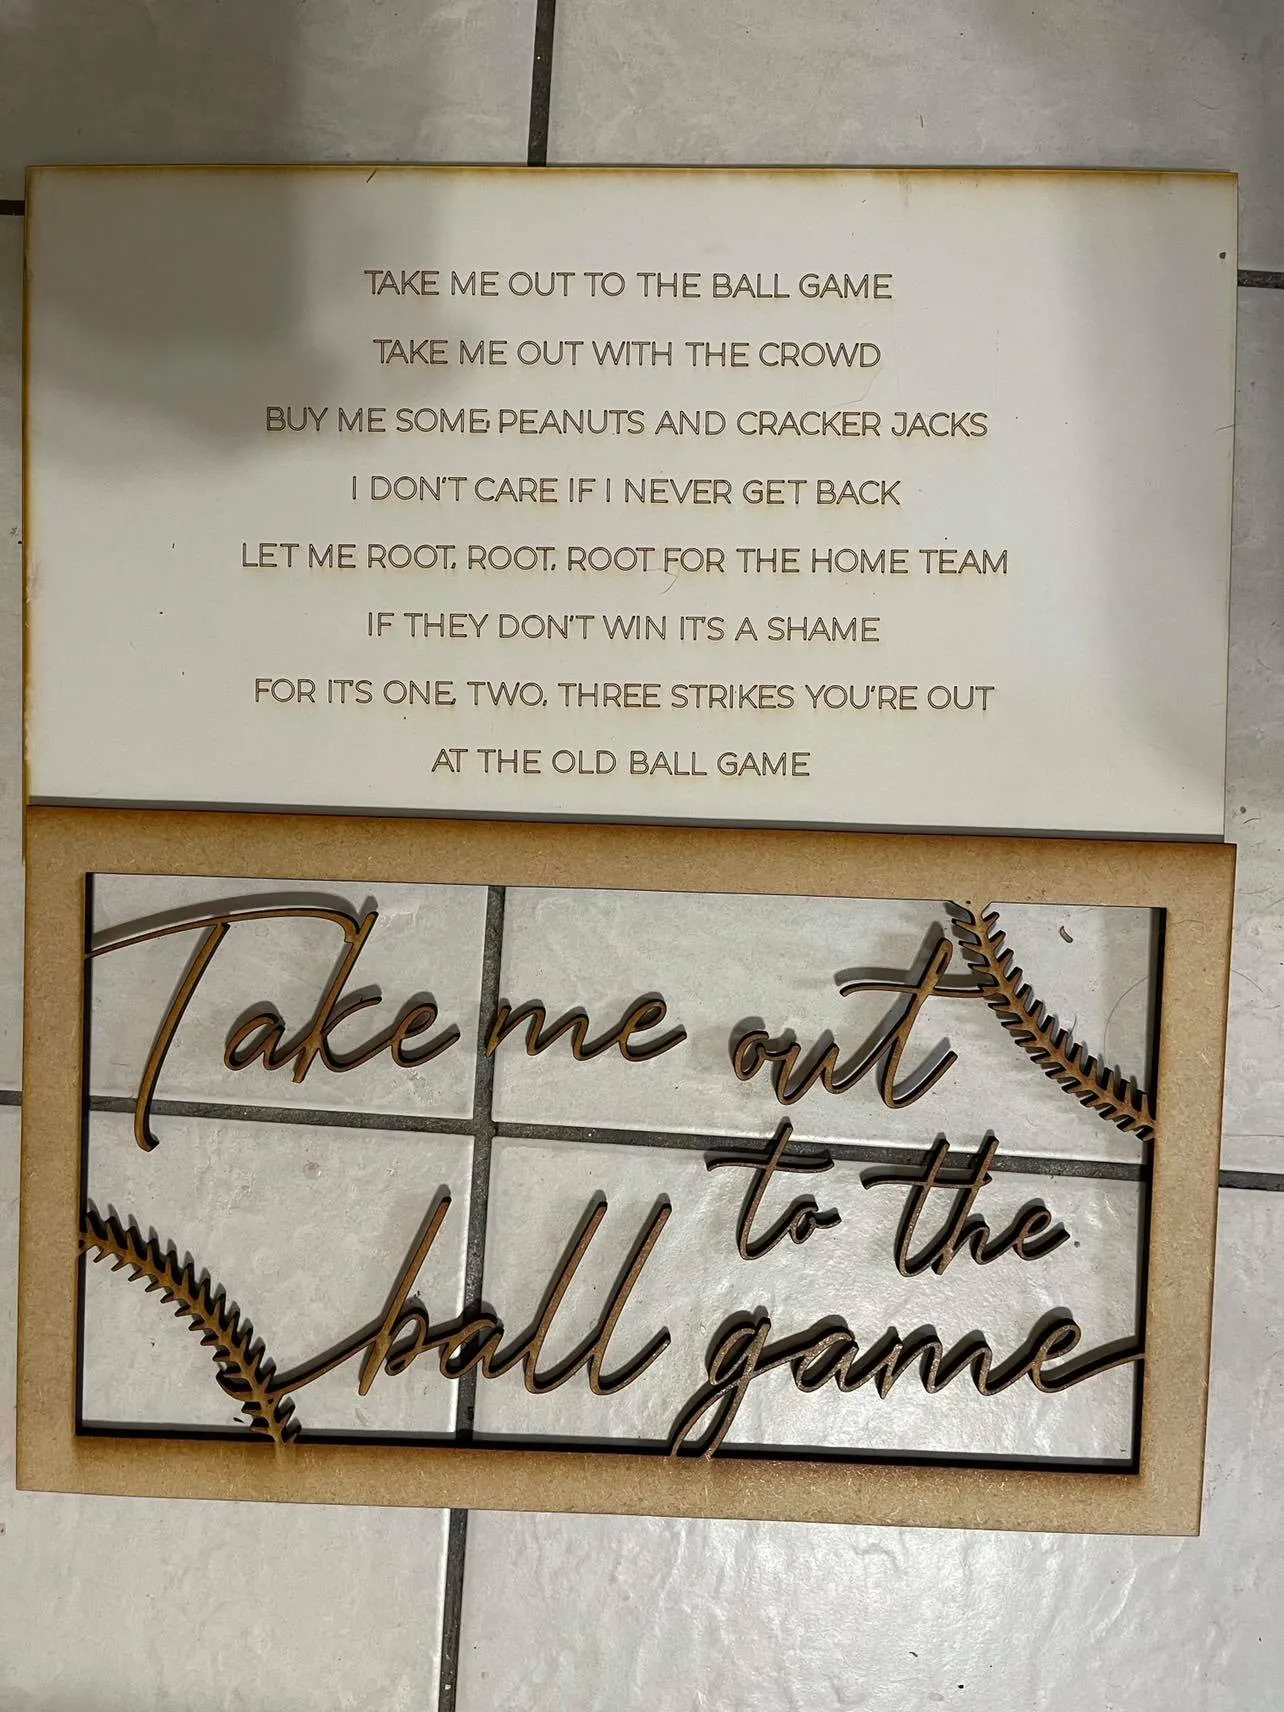 TAKE ME OUT TO THE BALL GAME
TAKE ME OUT WITH THE CROWD
BUY ME SOME PEANUTS AND CRACKER JACKS
I DON'T CARE IF I NEVER GET BACK
LET ME ROOT, ROOT, ROOT FOR THE HOME TEAM
IF THEY DON'T WIN IT'S A SHAME
FOR IT'S ONE, TWO, THREE STRIKES YOU'RE OUT
AT THE OLD BALL GAME
Take me out
to the
ball game